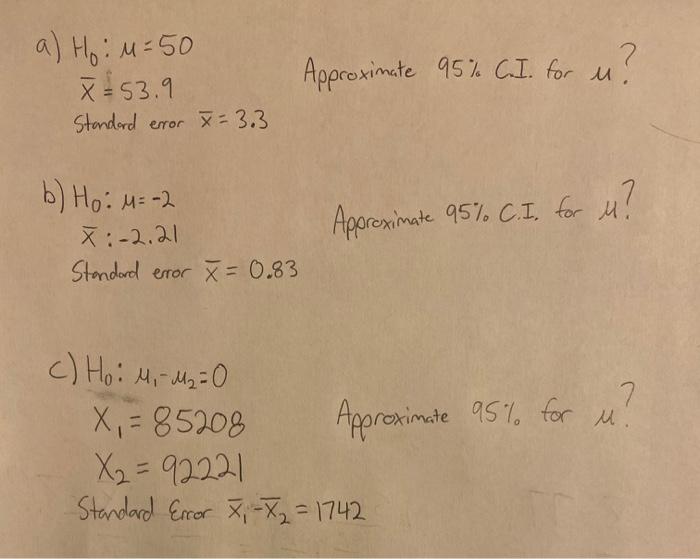 a) H₀: μ=50
x̄ = 53.9
Standard error x̄ = 3.3
Approximate 95% C.I. for μ?
b) H₀: μ=-2
x̄: -2.21
Standard error x̄ = 0.83
Approximate 95% C.I. for μ?
c) H₀: μ₁-μ₂=0
X₁ = 85208
X₂ = 92221
Standard Error x̄₁-x̄₂ = 1742
Approximate 95% for μ?